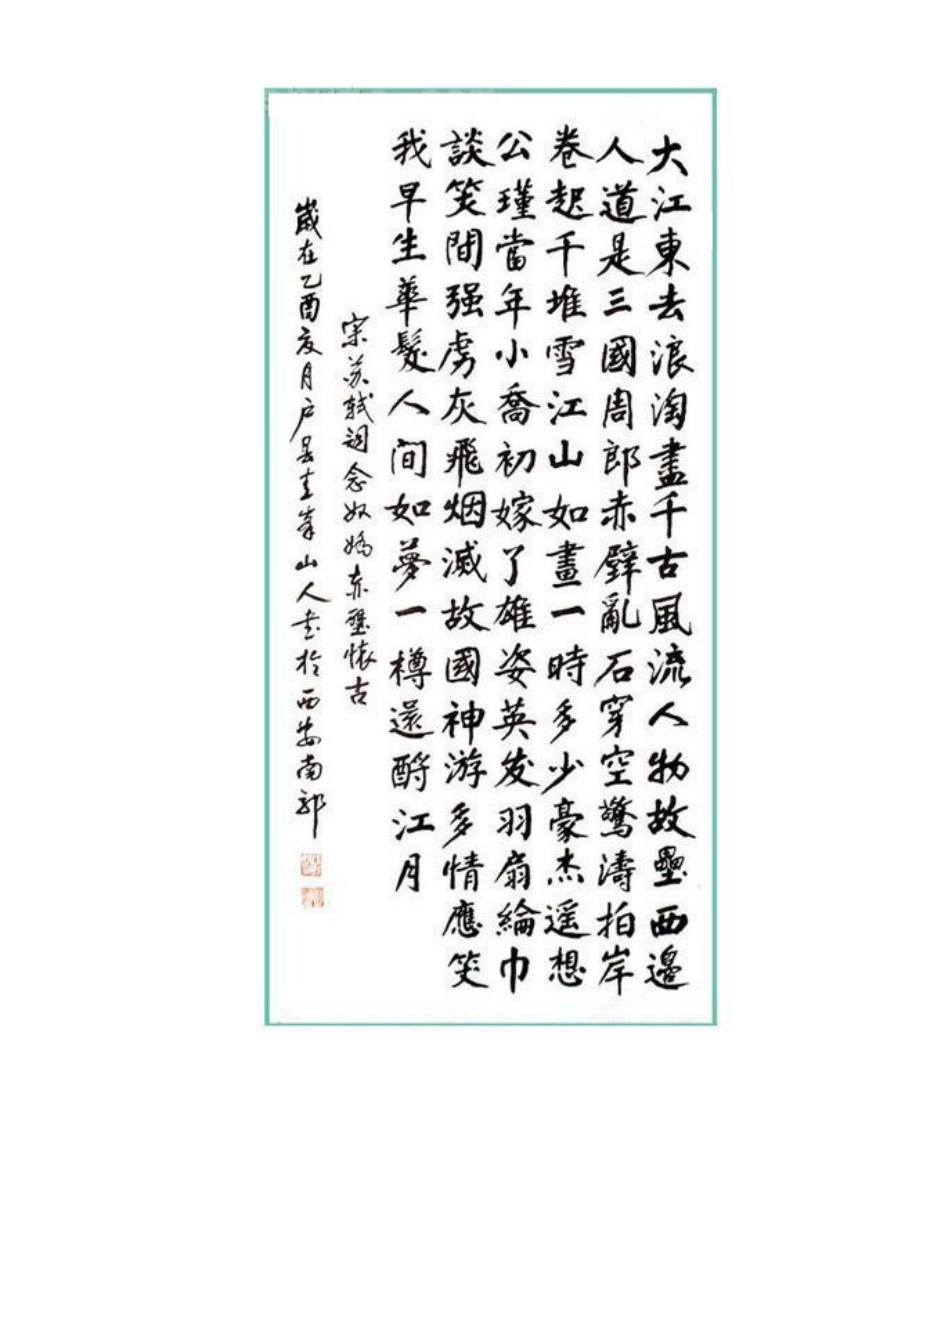 大江東去浪淘盡千古風流人物故壘西邊
人道是三國周郎赤壁亂石穿空驚濤拍岸
卷起千堆雪江山如畫一時多少豪杰遥想
公瑾當年小喬初嫁了雄姿英发羽扇綸巾
談笑間强虏灰飛烟滅故國神游多情應笑
我早生華髮人间如夢一樽還酹江月
宋苏軾詞念奴嬌赤壁怀古
歲在乙酉夜月户县圭峯山人书於西安南郭